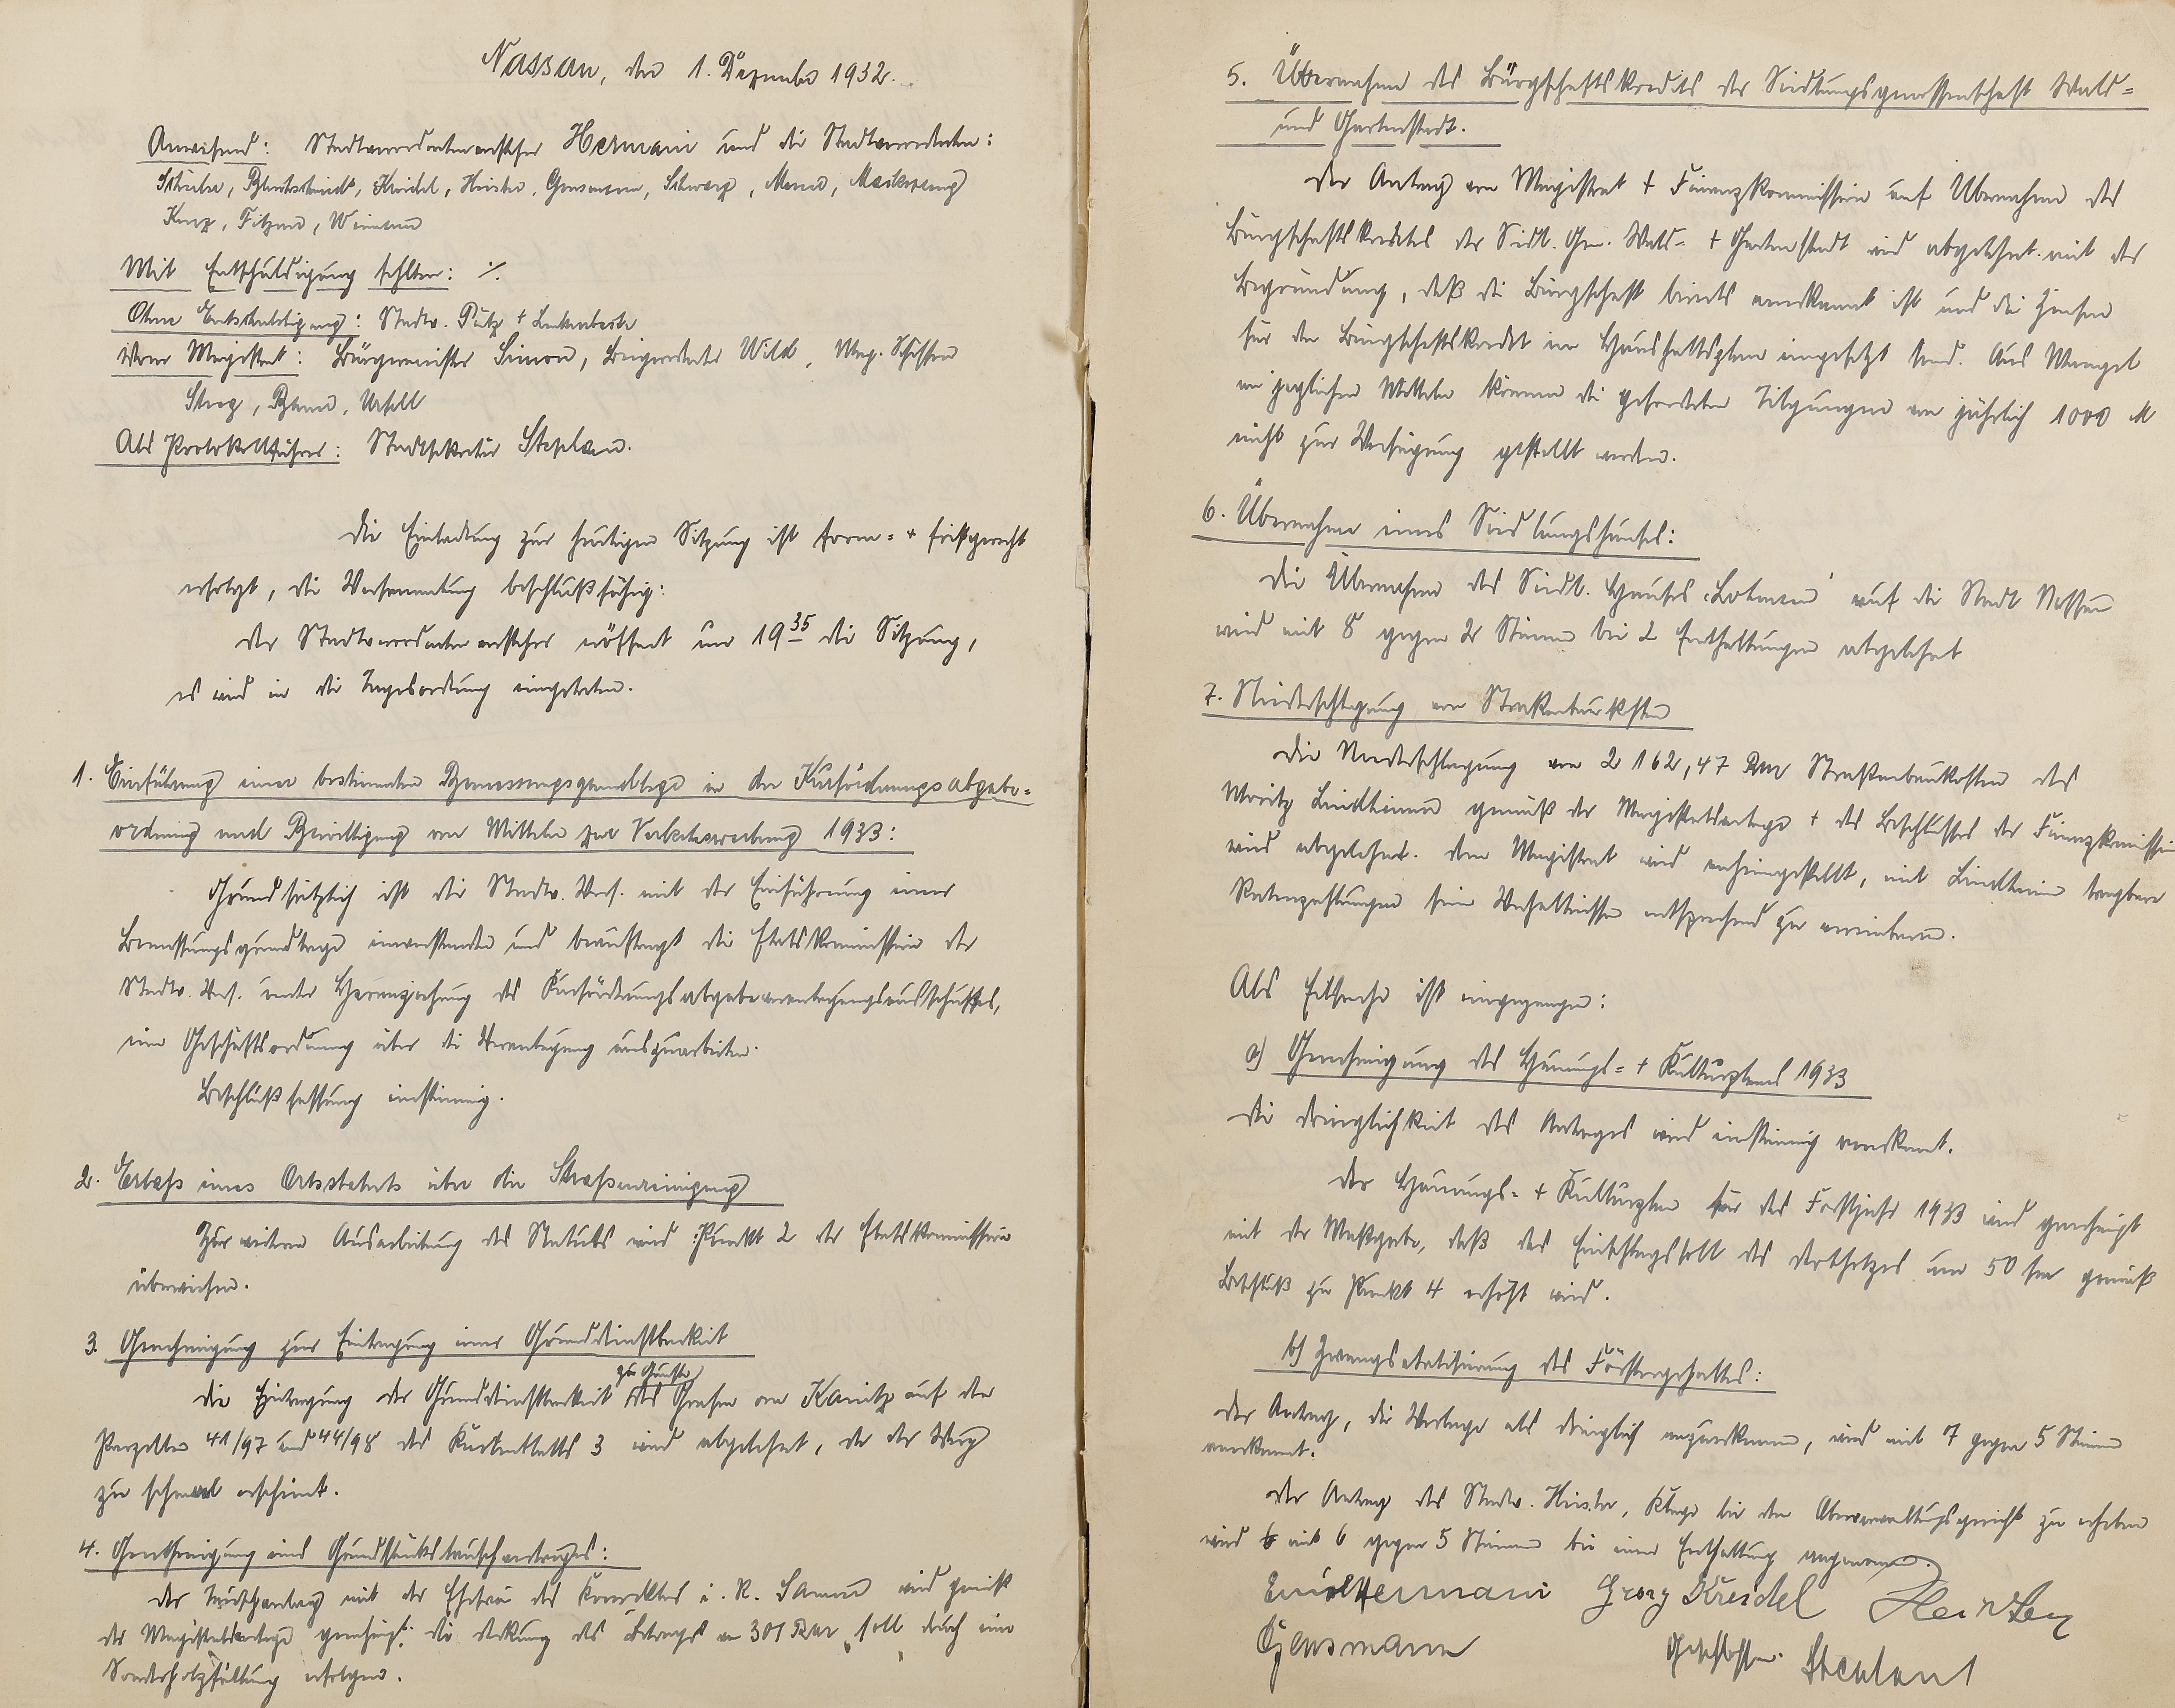 Nassau, den 1. Dezember 1932.
Anwesend: Stadtverordnetenvorsteher Hermani und die Stadtverordneten:
Kreidel, Gensmann, Schwarz,
Kurz,
Mit Entschuldigung fehlten: ./.
Ohne Entschuldigung: Stadtv. Pütz +
Vom Magistrat: Bürgermeister Simon, Beigeordneter Wild, Mag. Schöffen
Ursell
Als Protokollführer: Stadtsekretär Stephan.
Die Einladung zur heutigen Sitzung ist form- + fristgerecht
erfolgt, die Versammlung beschlußfähig.
Der Stadtverordnetenvorsteher eröffnet um 19 35 die Sitzung,
es wird in die Tagesordnung eingetreten.
1. Einführung einer bestimmten Bemessungsgrundlage in der Kurförderungsabgabe-
ordnung und Bewilligung von Mitteln zur Verkehrswerbung 1933:
Grundsätzlich ist die Stadtv. Vers. mit der Einführung einer
Bemessungsgrundlage einverstanden und beauftragt die Etatskommission der
Stadtv. Vers. unter Heranziehung des Kurförderungsabgabeveranlagungsausschusses,
eine Geschäftsordnung über die Veranlagung auszuarbeiten.
Beschlußfassung einstimmig.
2. Erlaß eines Ortsstatuts über die Straßenreinigung
Zur weiteren Ausarbeitung des Statuts wird Punkt 2 der Etatskommission
überwiesen.
3. Genehmigung zur Eintragung einer Grunddienstbarkeit
Die Eintragung der Grunddienstbarkeit zu Gunsten des Grafen von Kanitz auf den
Parzellen 41/97 und 44/98 des Kartenblatts 3 wird abgelehnt, da der Weg
zu schmal erscheint.
4. Genehmigung eines Grundstückstauschvertrages:
Der Tauschvertrag mit der Ehefrau des Konrektors i. R. wird gemäß
der Magistratsvorlage genehmigt; die Deckung des Betrags von 301 RM soll durch eine
Sonderholzfällung erfolgen.
5. Übernahme des Bürgschaftskredits der Siedlungsgenossenschaft Wald-
und Gartenstadt.
Der Antrag von Magistrat + Finanzkommission auf Übernahme des
Bürgschaftskredites der Siedl. Gen. Wald- + Gartenstadt wird abgelehnt mit der
Begründung, daß die Bürgschaft bereits anerkannt ist und die Zinsen
für den Bürgschaftskredit im Haushaltsplan eingesetzt sind. Aus Mangel
an jeglichen Mitteln können die geforderten Tilgungen von jährlich 1000 M
nicht zur Verfügung gestellt werden.
6. Übernahme eines Siedlungshauses:
Die Übernahme des Siedl. Hauses auf die Stadt Nassau
wird mit 8 gegen 2 Stimmen bei 2 Enthaltungen abgelehnt
7. Niederschlagung von Straßenbaukosten
Die Niederschlagung von 2162,47 RM Straßenbaukosten des
Moritz Lindheimer gemäß der Magistratsvorlage + des Beschlusses der Finanzkommission
wird abgelehnt. Dem Magistrat wird anheimgestellt, mit Lindheimer tragbare
Ratenzahlungen seinen Verhältnissen entsprechend zu vereinbaren.
Als Eilsache ist eingegangen:
a) Genehmigung des Hauungs- + Kulturplans 1933
Die Dringlichkeit des Antrages wird einstimmig anerkannt.
Der Hauungs- + Kulturplan für das Forstjahr 1933 wird genehmigt
mit der Maßgabe, daß das Einschlagssoll des Derbholzes um 50 fm gemäß
Beschluß zu Punkt 4 erhöht wird.
b) Zwangsetatisierung des Förstergehaltes:
Der Antrag, die Vorlage als dringlich anzuerkennen, wird mit 7 gegen 5 Stimmen
anerkannt.
Der Antrag des Stadtv. Klage bei dem Oberverwaltungsgericht zu erheben
wird mit 6 gegen 5 Stimmen bei einer Enthaltung angenommen.
Emil Hermani Georg Kreidel
Gensmann Geschlossen. Stephan